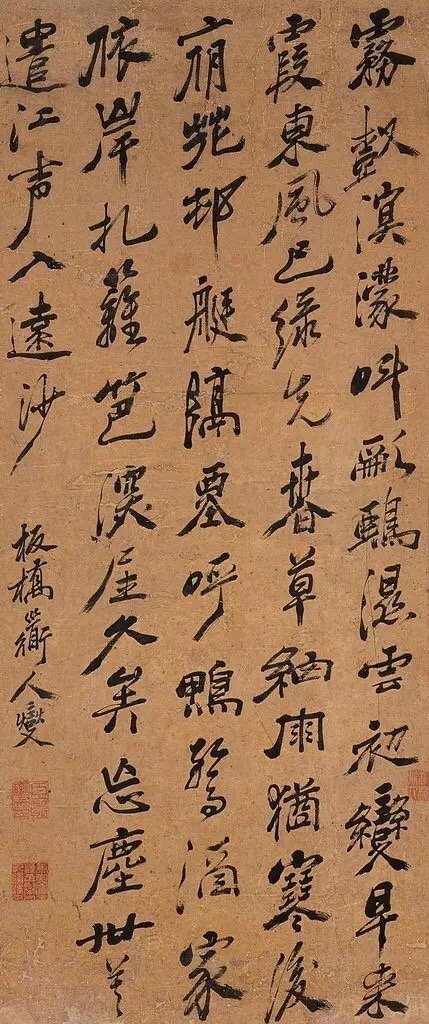 霧樹溟濛叫亂鴉濕雲初變早来
霞東風已綠先春草細雨猶寒後
夜花邨艇隔煙呼鴨鶩酒家
依岸扎籬笆深居久矣忘塵世莫
遣江声入遠沙
板橋衜人燮